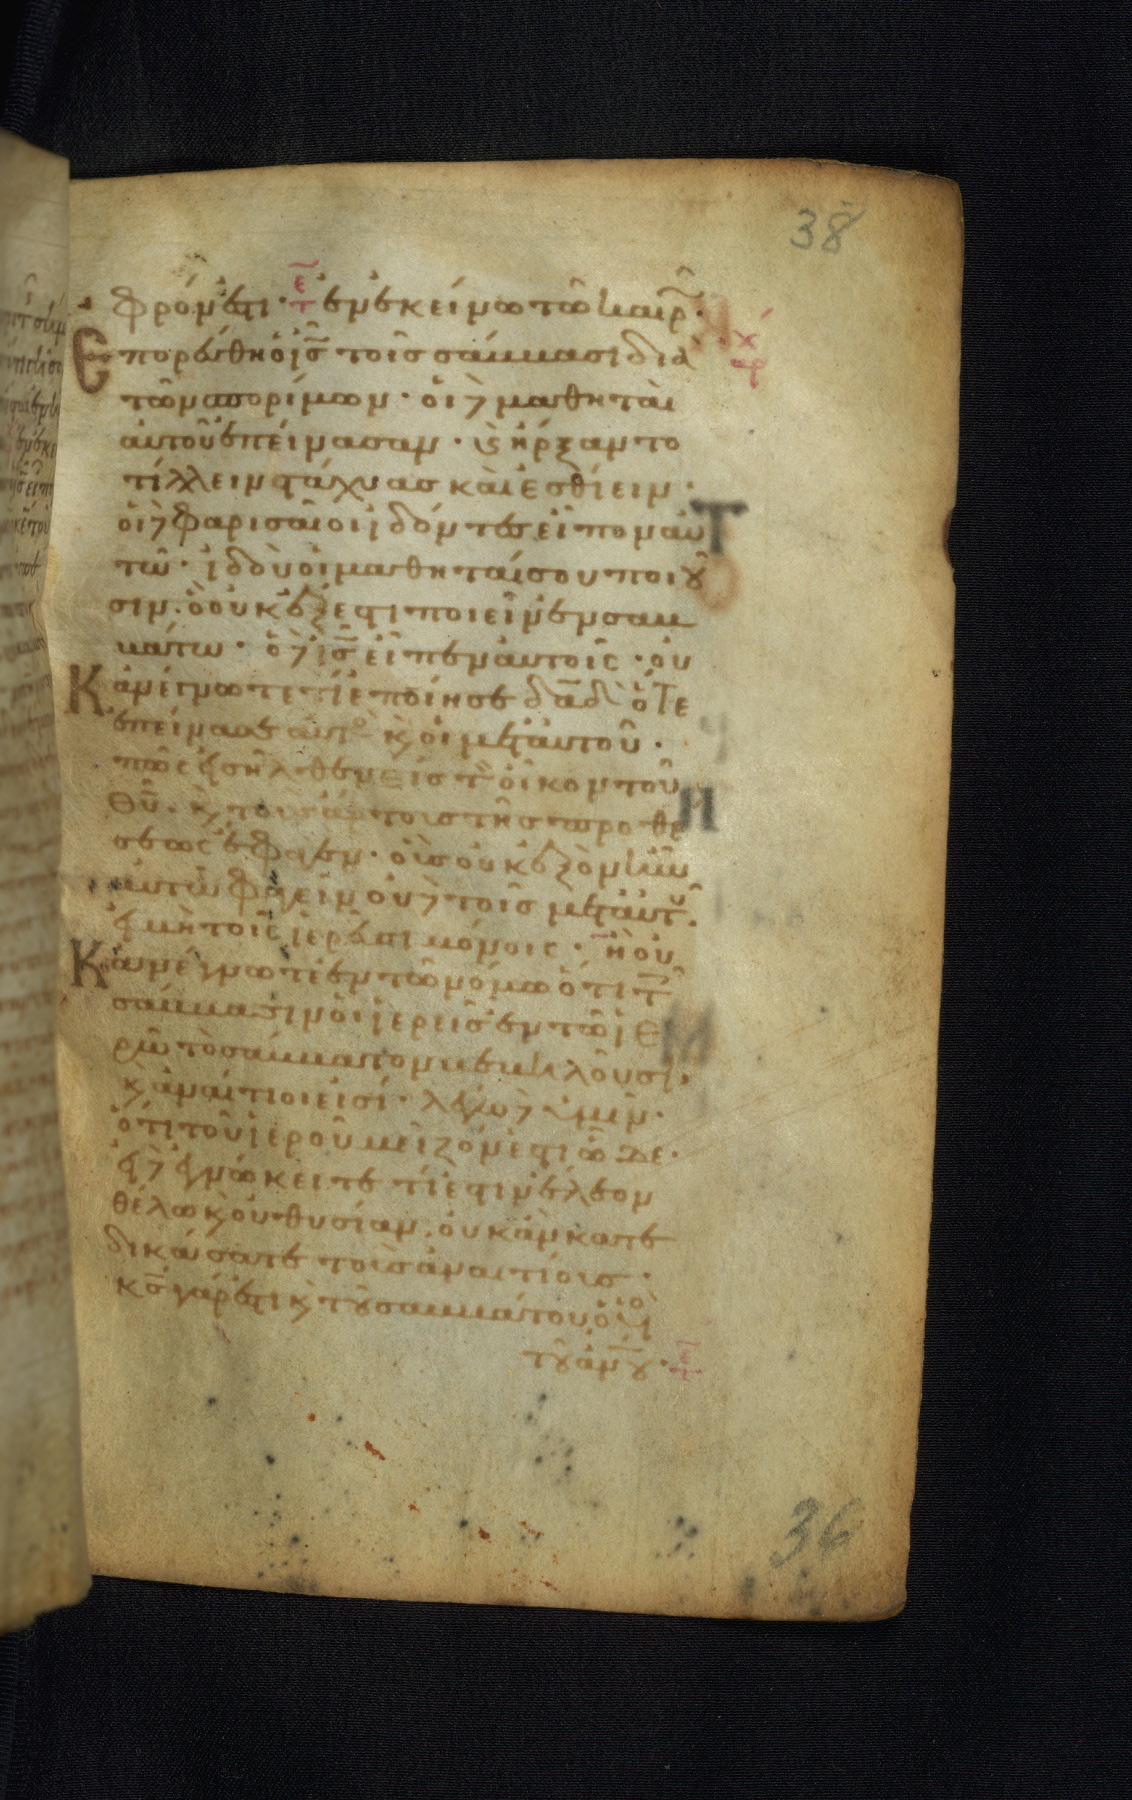 38
φρόν ἐστι· ἐν ἐκείνω τῶ καιρῶ·
Ἐπορεύθη ὁ ἰς τοῖς σάββασι διὰ
τῶν σπορίμων· οἱ δὲ μαθηταὶ
αὐτοῦ ἐπείνασαν· καὶ ἤρξαντο
τίλλειν στάχυας καὶ ἐσθίειν·
οἱ δὲ φαρισαῖοι ἰδόντες εἶπον αὐ
τῶ· ἰδοὺ οἱ μαθηταί σου ποιοῦ
σιν· ὃ οὐκ ἔξεστι ποιεῖν ἐν σαβ
βάτω· ὁ δὲ ἰς εἶπεν αὐτοῖς· οὐ
κ ἀνέγνωτε τί ἐποίησε δαδ ὅτε
ἐπείνασε αὐτὸς καὶ οἱ μετ αὐτοῦ·
πῶς εἰσῆλθεν εἰς τὸν οἶκον τοῦ
θυ· καὶ τοὺς ἄρτους τῆς προθέ
σεως ἔφαγεν· οἷς οὐκ ἐξὸν ἦν
αὐτῶ φαγεῖν οὐδὲ τοῖς μετ αὐτοῦ·
εἰ μὴ τοῖς ἱερεῦσι μόνοις· ἢ οὐ
Κ ἀνέγνωτε ἐν τῶ νόμω ὅτι τοῖς
σάββασιν οἱ ἱερεῖς ἐν τῶ ἱε
ρῶ τὸ σάββατον βεβηλοῦσι·
καὶ ἀναίτιοι εἰσί· λέγω δὲ ὑμῖν·
ὅτι τοῦ ἱεροῦ μεῖζόν ἐστι ὧδε·
εἰ δὲ ἐγνώκειτε τί ἐστιν ἔλεον
θέλω καὶ οὐ θυσίαν· οὐκ ἂν κατε
δικάσατε τοὺς ἀναιτίους·
κς γάρ ἐστι καὶ τοῦ σαββάτου ὁ υἱὸς
τοῦ ἀνου·
36